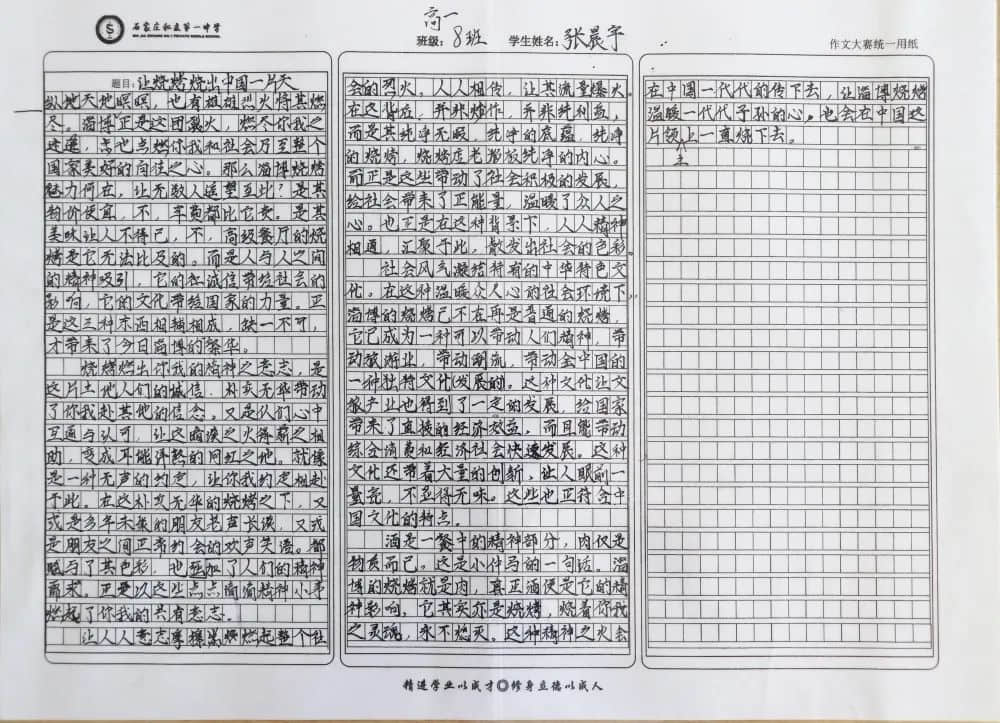 石家庄私立第一中学
高一
班级：8班 学生姓名：张晨宇
作文大赛统一用纸
题目：让烧烤烧出中国一片天
纵地天地暝暝，也有雄雄烈火将其燃
尽。淄博正是这团烈火，燃尽你我之
迷，点也当燃你我和社会乃至整个
国家美好的向往之心。那么淄博烧烤
魅力何在，让无数人遥望至此？是其
物价便宜，不，车费都比它贵。是其
美味让人不得已，不，高级餐厅的烧
烤是它无法比及的。而是人与人之间
的精神吸引，它的在诚信带给社会的
影响，它的文化带给国家的力量。正
是这三种东西相辅相成，缺一不可，
才带来了今日淄博的繁华。
烧烤燃出你我的精神之意志，是
这片土地人们的诚信，朴实无华带动
了你我赴其他的信念。又是人们心中
互通与认可，让这暗淡之火得薪之相
助，变成耳能详熟的网红之地。就像
是一种无声的约定，让你我约定相赴
于此。在这朴实无华的烧烤之下，又
或是多年未聚的朋友老声长谈，又或
是朋友之间正常约会的欢声笑语。都
赋与了其色彩，也加了人们的精神
需求。正是以这些点点滴滴精神小事
燃起了你我的共有意志。
让人人意志摩擦燃起整个社
会的烈火。人人相传，让其流量爆火。
在这背后，并非炒作，并非纯利益，
而是其纯净无暇，纯净的底蕴，纯净
的烧烤，烧烤店老板纯净的内心。
而正是这些带动了社会积极的发展，
给社会带来了正能量，温暖了众人之
心。也正是在这种背景下，人人精神
相通，汇聚于此，散发出社会的色彩。
社会风气凝结特有的中华特色文
化。在这种温暖众人心的社会环境下，
淄博的烧烤已不在再是普通的烧烤，
它已成为一种可以带动人们精神，带
动旅游业，带动潮流，带动全中国的
一种独特文化发展的。这种文化让文
旅产业也得到了一定的发展，给国家
带来了直接的经济效益，而且能带动
综合消费和经济社会快速发展。这种
文化还带着大量的创新，让人眼前一
亮，不显得无味。这些也正符合中
国文化的特点。
酒是一餐中的精神部分，肉仅是
物质而已。这是小仲马的一句话。淄
博的烧烤就是肉，真正酒便是它的精
神影响。它其实亦是烧烤，烧着你我
之灵魂，永不熄灭。这种精神之火会
在中国一代代的传下去，让淄博烧烤
温暖一代代子孙的心。也会在中国这
片领土上一直烧下去。
精进学业以成才 修身立德以成人